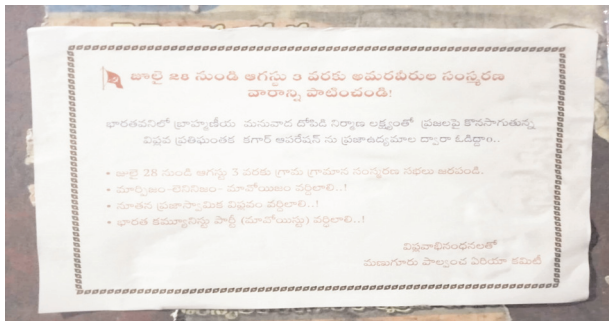 జులై 28 నుండి ఆగస్టు 3 వరకు అమరవీరుల సంస్మరణ
వారాన్ని పాటించండి!
భారతవనిలో బ్రాహ్మణీయ మనువాద దోపిడి నిర్మాణ లక్ష్యంతో ప్రజలపై కొనసాగుతున్న
విప్లవ ప్రతిఘంతక కగార్ ఆపరేషన్ ను ప్రజాఉద్యమాల ద్వారా ఓడిద్దాం..
• జులై 28 నుండి ఆగస్టు 3 వరకు గ్రామ గ్రామాన సంస్మరణ సభలు జరపండి.
• మార్క్సిజం-లెనినిజం- మావోయిజం వర్ధిలాలి..!
• నూతన ప్రజాస్వామిక విప్లవం వర్ధిలాలి..!
• భారత కమ్యూనిస్టు పార్టీ (మావోయిస్టు) వర్ధిలాలి..!
విప్లవాభినందనలతో
మణుగూరు పాల్వంచ ఏరియా కమిటీ